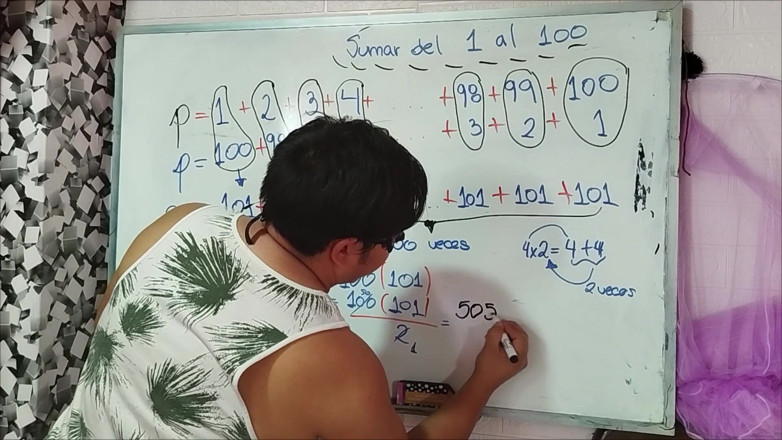 Sumar del 1 al 100
p = 1 + 2 + 3 + 4 + + 98 + 99 + 100
p = 100 + + 3 + 2 + 1
101 + + 101 + 101 + 101
veces
4x2 = 4 + 4
2 veces
(101)
100 (101)
2 1
= 505